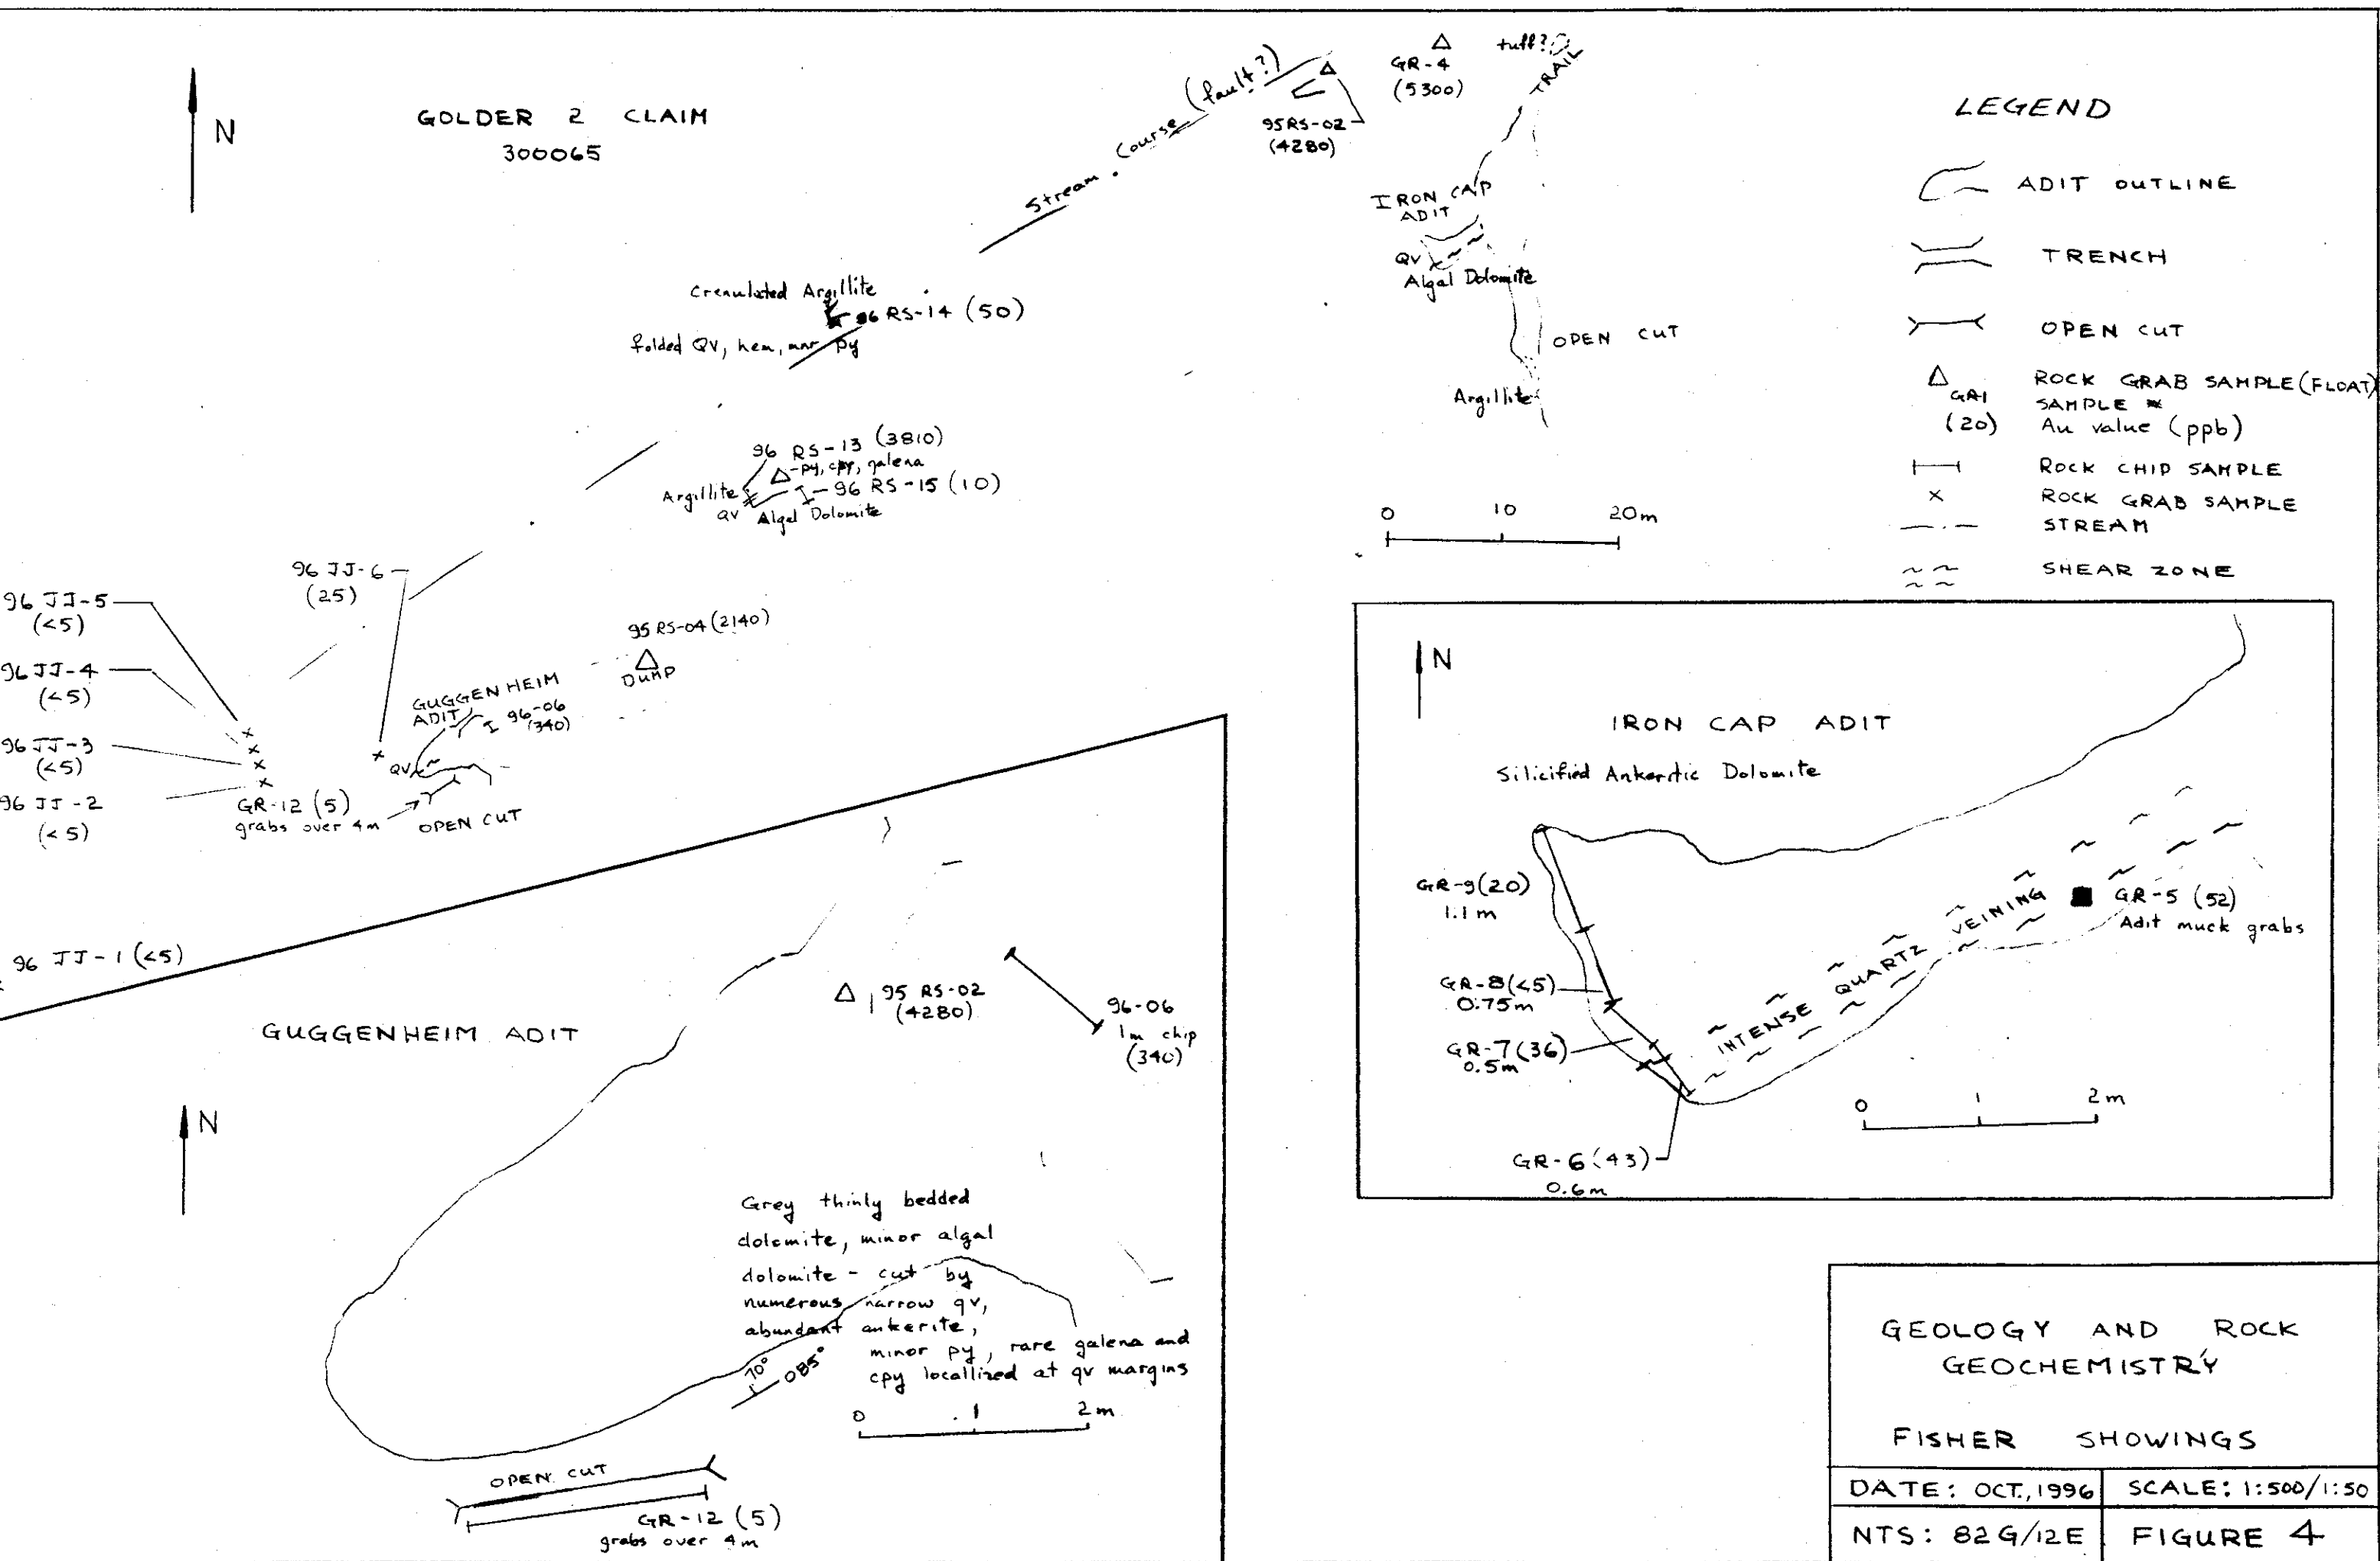 N
GOLDER 2 CLAIM
300065
Stream Course (fault?)
95RS-02
(4280)
GR-4
(5300)
tuff?
TRAIL
IRON CAP
ADIT
QV
Algal Dolomite
OPEN CUT
Argillite
Crenulated Argillite
96 RS-14 (50)
folded QV, hem, mnr py
96 RS-13 (3810)
-py, cpy, galena
Argillite
96 RS-15 (10)
QV Algal Dolomite
0 10 20m
96 JJ-6
(25)
96 JJ-5
(<5)
96 JJ-4
(<5)
96 JJ-3
(<5)
96 JJ-2
(<5)
95 RS-04 (2140)
DUMP
GUGGENHEIM
ADIT
96-06
(340)
QV
GR-12 (5)
grabs over 4m
OPEN CUT
96 JJ-1 (<5)
LEGEND
ADIT OUTLINE
TRENCH
OPEN CUT
ROCK GRAB SAMPLE (FLOAT)
GR1 SAMPLE #
(20) Au value (ppb)
ROCK CHIP SAMPLE
ROCK GRAB SAMPLE
STREAM
SHEAR ZONE
N
IRON CAP ADIT
Silicified Ankeritic Dolomite
GR-9(20)
1.1 m
GR-8(<5)
0.75m
GR-7(36)
0.5m
GR-6(43)
0.6m
INTENSE QUARTZ VEINING
GR-5 (52)
Adit muck grabs
0 1 2 m
GUGGENHEIM ADIT
N
95 RS-02
(4280)
96-06
1m chip
(340)
Grey thinly bedded
dolomite, minor algal
dolomite - cut by
numerous narrow qv,
abundant ankerite,
minor py, rare galena and
cpy locallized at qv margins
70°
085°
0 1 2 m
OPEN CUT
GR-12 (5)
grabs over 4m
GEOLOGY AND ROCK
GEOCHEMISTRY
FISHER SHOWINGS
DATE: OCT., 1996 SCALE: 1:500/1:50
NTS: 82G/12E FIGURE 4